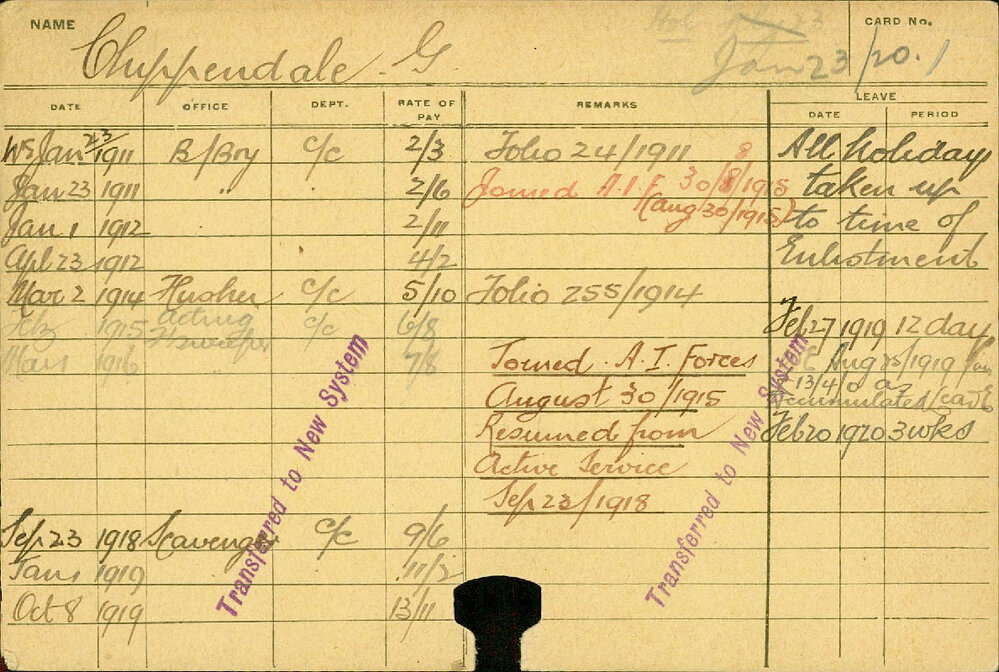 NAME
Chippendale. G.
Jan 23/20. 1
CARD No.
DATE OFFICE DEPT. RATE OF PAY REMARKS LEAVE
DATE PERIOD
WE Jan 23/1911 B/Boy C/C 2/3 Folio 24/1911 All holidays
Jan 23 1911 " . 2/6 Joined A.I.F 30/8/1915 taken up
(Aug 30/1915) to time of
Jan 1 1912 2/11
Apl 23 1912 4/2 Enlistment
Mar 2 1914 C/C 5/10 Folio 255/1914
Feb 1915 Acting C/C 6/8 Feb 27 1919 12 days
Sweeper
Mar 1 1916 7/8 Joined A. I. Forces Aug 25/1919
£13/4/0 as
August 30/1915 accumulated leave
Resumed from Feb 20 1920 3 wks
Active Service
Sep 23/1918
Sep 23 1918 Scavenger C/C 9/6
Jan 1 1919 11/2
Oct 8 1919 13/11
Transferred to New System
Transferred to New System